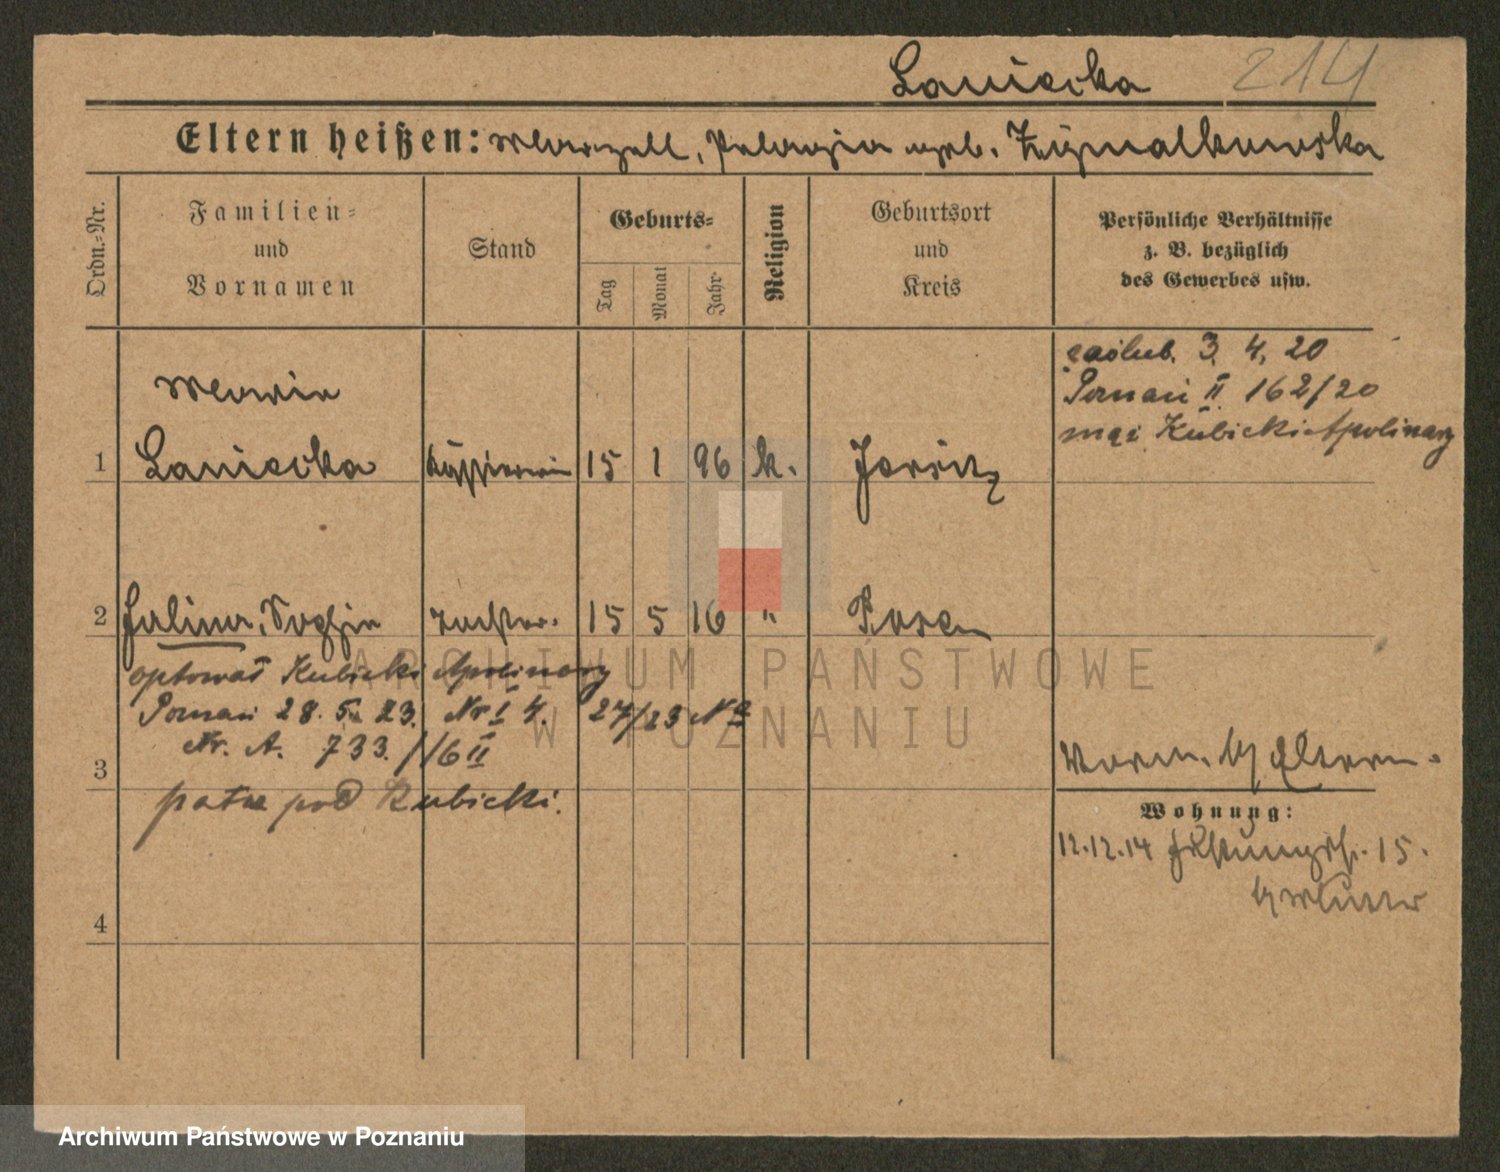 Laniecka 214
Eltern heißen: Marzell, Pelagia geb. Zygmalkowska
Ordn.-Nr.
Familien-
und
Vornamen
Stand
Geburts-
Tag
Monat
Jahr
Religion
Geburtsort
und
Kreis
Persönliche Verhältnisse
z. B. bezüglich
des Gewerbes usw.
zaślub. 3. 4. 20
Poznań II 162/20
mąż Kubicki Apolinary
Maria
1 Laniecka Kassiererin 15 1 96 k. Jersitz
2 Halina, Sophie Tochter. 15 5 16 " Posen
optował Kubicki Apolinary
Poznań 28. 5. 23. Nr I 4. 27/23 N
Nr. A. 733. //6 II
3
patrz pod Kubicki.
Vorm. b/ Eltern.
Wohnung:
12.12.14 15.
b/ Mutter
4
ARCHIWUM PAŃSTWOWE
W POZNANIU
Archiwum Państwowe w Poznaniu